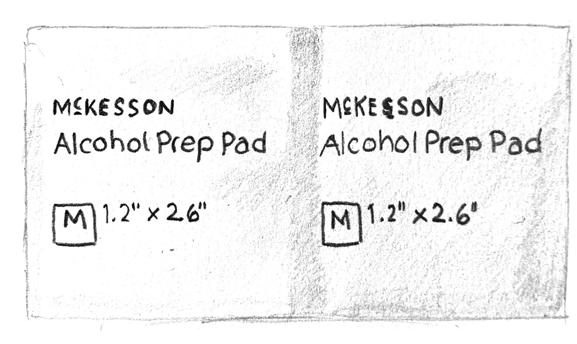 McKESSON
Alcohol Prep Pad
M 1.2" x 2.6"
McKESSON
Alcohol Prep Pad
M 1.2" x 2.6"